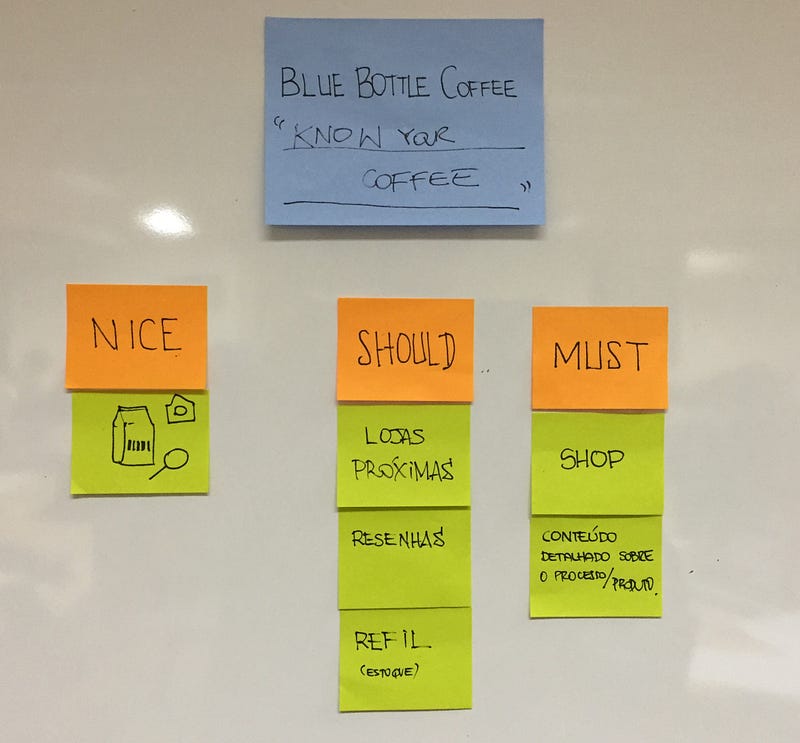 BLUE BOTTLE COFFEE
"KNOW YOUR
COFFEE"
NICE
SHOULD
LOJAS
PRÓXIMAS
RESENHAS
REFIL
(ESTOQUE)
MUST
SHOP
CONTEÚDO
DETALHADO SOBRE
O PROCESSO/PRODUTO.